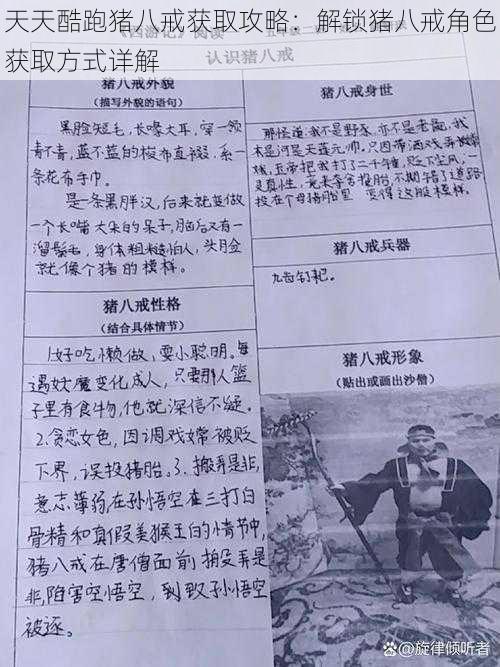 天天酷跑猪八戒获取攻略：解锁猪八戒角色
获取方式详解
《西游记》阅读
认识猪八戒
猪八戒外貌
（描写外貌的语句）
黑脸短毛，长喙大耳，穿一领
青不青，蓝不蓝的梭布直裰，系一
条花布手巾。
是一条黑胖汉，后来就变做
一个长嘴大朵的呆子，脑后又有一
溜鬃毛，身体粗糙怕人，头脸
就像个猪的模样。
猪八戒身世
那怪道：我不是野豕，亦不是老彘，我
本是河是天蓬元帅，只因带酒戏弄嫦娥
娥，玉帝把我打了二千锤，贬下尘凡，一
灵真性，竟来夺舍投胎，不期错了道路
投在个母猪胎里 变得这般模样。
猪八戒兵器
九齿钉耙。
猪八戒性格
（结合具体情节）
1.好吃懒做，耍小聪明。每
遇妖魔变化成人，只要那人篮
子里有食物，他就深信不疑。
2.贪恋女色，因调戏嫦被贬
下界，误投猪胎。3.搬弄是非，
意志薄弱，在孙悟空在三打白
骨精和真假美猴王的情节中，
猪八戒在唐僧面前搬弄是
非，陷害空悟空，到致孙悟空
被逐。
猪八戒形象
（贴出或画出沙僧）
@旋律倾听者